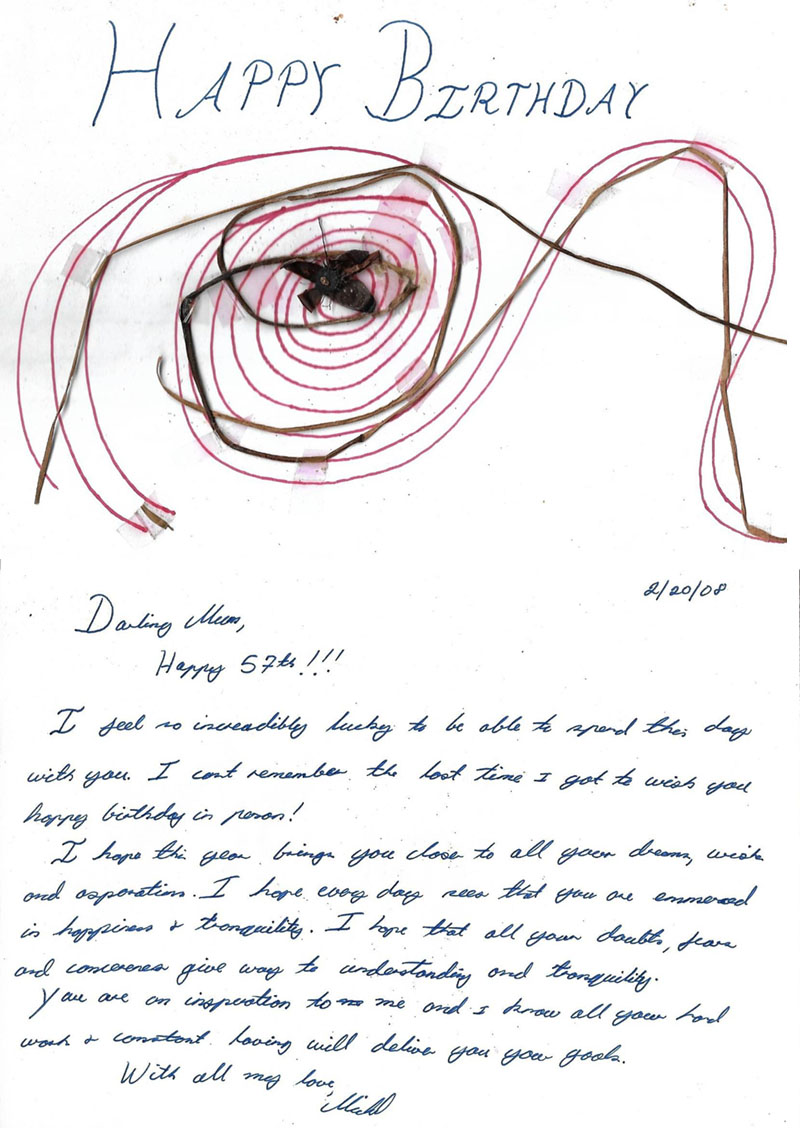 HAPPY BIRTHDAY
2/20/08
Darling Mum,
Happy 57th!!!
I feel so increadibly lucky to be able to spend this day
with you. I cant remember the last time I got to wish you
happy birthday in person!
I hope this year brings you closer to all your dreams, wish
and asporations. I hope every day sees that you are emmersed
in happiness & tranquility. I hope that all your doubts, fears
and concerns give way to understanding and tranquility.
You are an inspiration to me and I know all your hard
work & constant loving will deliver you your goals.
With all my love,